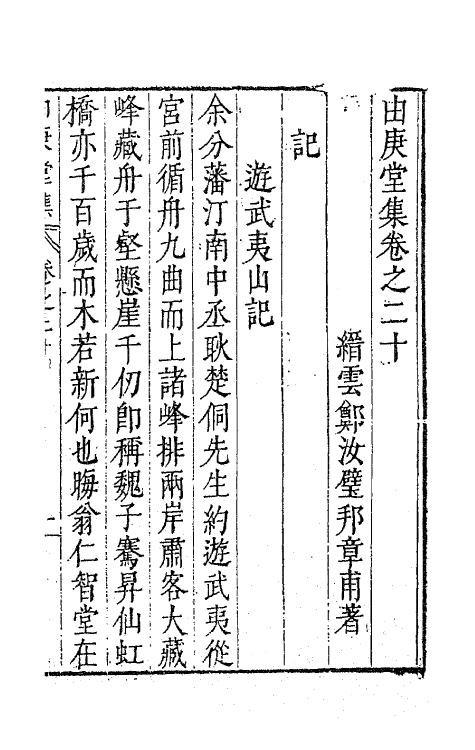 由庚堂集卷之二十
縉雲鄭汝璧邦章甫著
記
遊武夷山記
余分藩汀南中丞耿楚侗先生約遊武夷從
宮前循舟九曲而上諸峰排兩岸肅客大藏
峰藏舟于壑懸崖千仞卽稱魏子騫昇仙虹
橋亦千百歲而木若新何也晦翁仁智堂在
由庚堂集
卷之二十
一